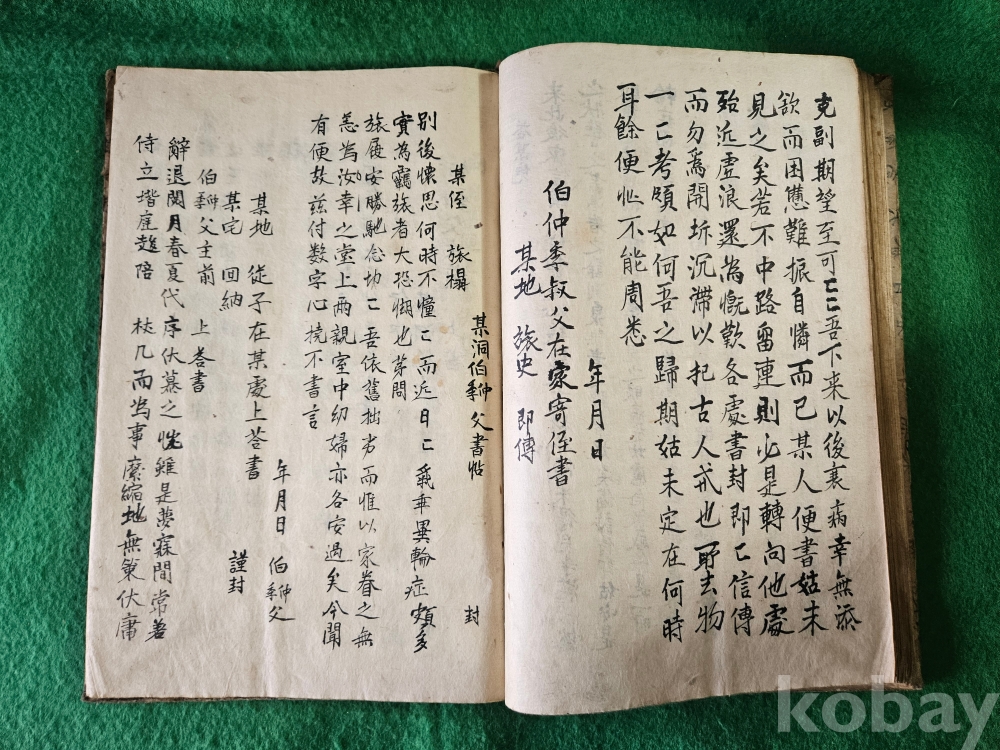 克副期望至可匕匕吾下来以後衰病幸無添
欲而困憊難振自憐而已某人便書姑未
見之矣若不中路留連則必是轉向他處
殆近虛浪還為慨歎各處書封即匕信傳
而勿為開坼沉滯以犯古人戒也所去物
一匕考領如何吾之歸期姑未定在何時
耳餘便忙不能周悉
年月日
伯仲季叔父在家寄侄書
某地 旅史 即傳
某洞伯仲季父書帖 封
某侄 旅榻
別後懷思何時不憧匕而近日匕氣乖異輪症頗多
實為羈旅者大恐惱也芽問
旅履安勝馳念切匕吾依舊拙劣而惟以家眷之無
恙為汝幸之堂上兩親室中幼婦亦各安過矣今聞
有便故茲付数字心撓不書言
年月日 伯仲季父
某地 從子在某處上答書
某宅 回納 謹封
伯仲季父主前 上答書
辭退閱月春夏代序伏慕之忱雖是夢寐間常若
侍立堦庭趍陪 杖几而為事縻縮地無策伏庸